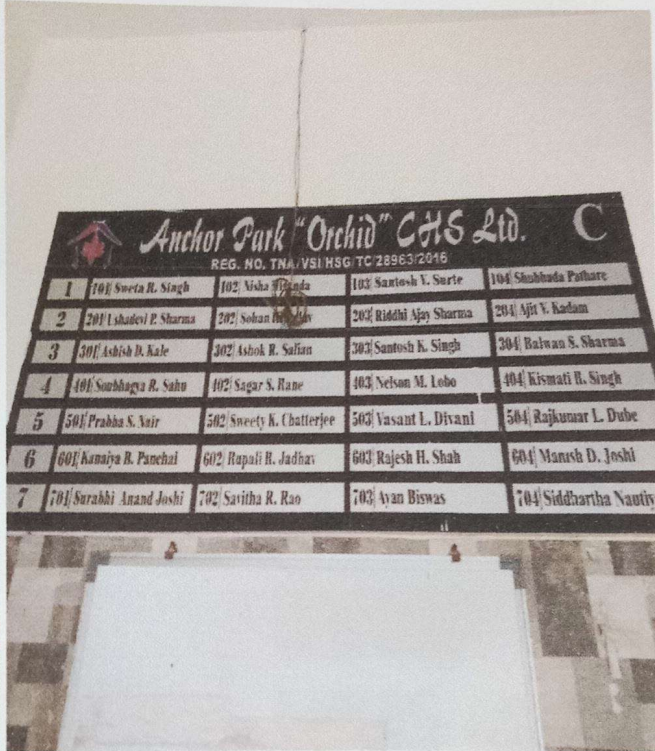 Anchor Park "Orchid" CHS Ltd. C
REG. NO. TNA/VSI/HSG/TC/28963/2016
1 101 Sweta R. Singh 102 Nisha 103 Santosh Y. Surte 104 Shubhada Pathare
2 201 Ushadevi P. Sharma 202 Sohan 203 Riddhi Ajay Sharma 204 Ajit V. Kadam
3 301 Ashish D. Kale 302 Ashok R. Salian 303 Santosh K. Singh 304 Balwan S. Sharma
4 401 Soubhagya R. Sahu 402 Sagar S. Rane 403 Nelson M. Lobo 404 Kismati R. Singh
5 501 Prabha S. Nair 502 Sweety K. Chatterjee 503 Vasant L. Divani 504 Rajkumar L. Dube
6 601 Kanaiya B. Panchal 602 Rupali H. Jadhav 603 Rajesh H. Shah 604 Manish D. Joshi
7 701 Surabhi Anand Joshi 702 Savitha R. Rao 703 Ayan Biswas 704 Siddhartha Nautiy